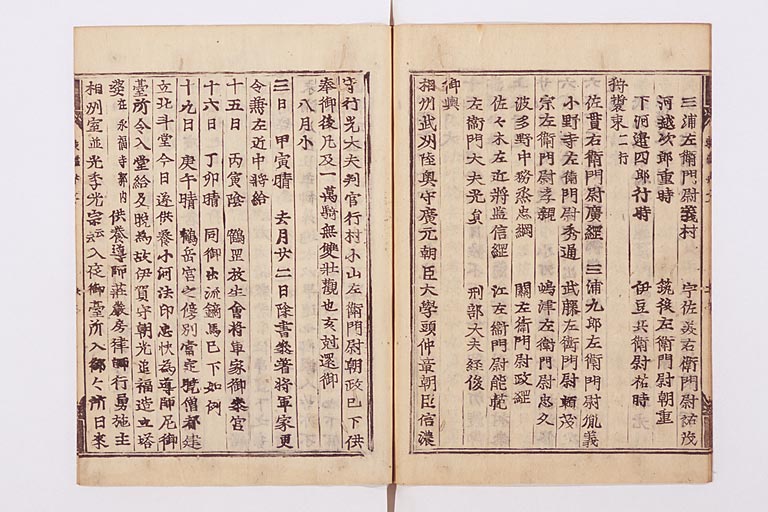 三浦左衛門尉義村　宇佐美右衛門尉祐茂
河越次郎重時　筑後左衛門尉朝重
下河邊四郎行時　伊豆左衛門尉祐時
狩装束二行
佐貫右衛門尉廣經　三浦九郎左衛門尉胤義
小野寺左衛門尉秀通　武藤左衛門尉頼茂
宗左衛門尉孝親　嶋津左衛門尉忠久
波多野中務烝忠綱　関左衛門尉政綱
佐々木左近将監信綱　江左衛門尉能範
左衛門大夫光員　刑部大夫経俊
御輿
相州武州陸奥守廣元朝臣大學頭仲章朝臣信濃
守行光大夫判官行村小山左衛門尉朝政已下供
奉御後凡及一萬騎無雙壮観也亥尅還御
八月小
三日　甲寅晴　去月廿二日除書参著将軍家更
令兼左近中将給
十五日　丙寅陰　鶴岡放生會将軍家御参宮
十六日　丁卯晴　同御出流鏑馬已下如例
十九日　庚午晴　鶴岳宮之傍別當定暁僧都建
立北斗堂今日遂供養小河法印忠快為導師尼御
臺所令入堂給及晩為故伊賀守朝光追福造立塔
婆在永福寺郭内供養導師荘厳房律師行勇施主
相州室並光季光宗云云入夜御臺所入御々所日来